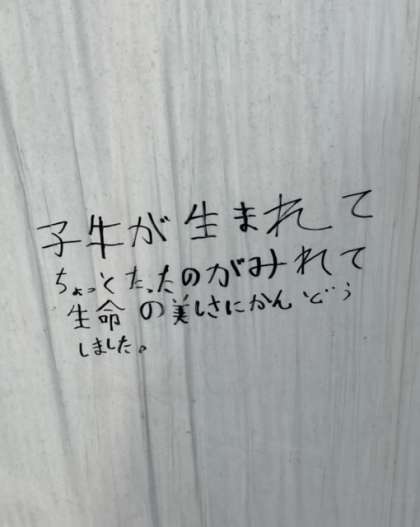 子牛が生まれて
ちょっとたったのがみれて
生命の美しさにかんどう
しました。